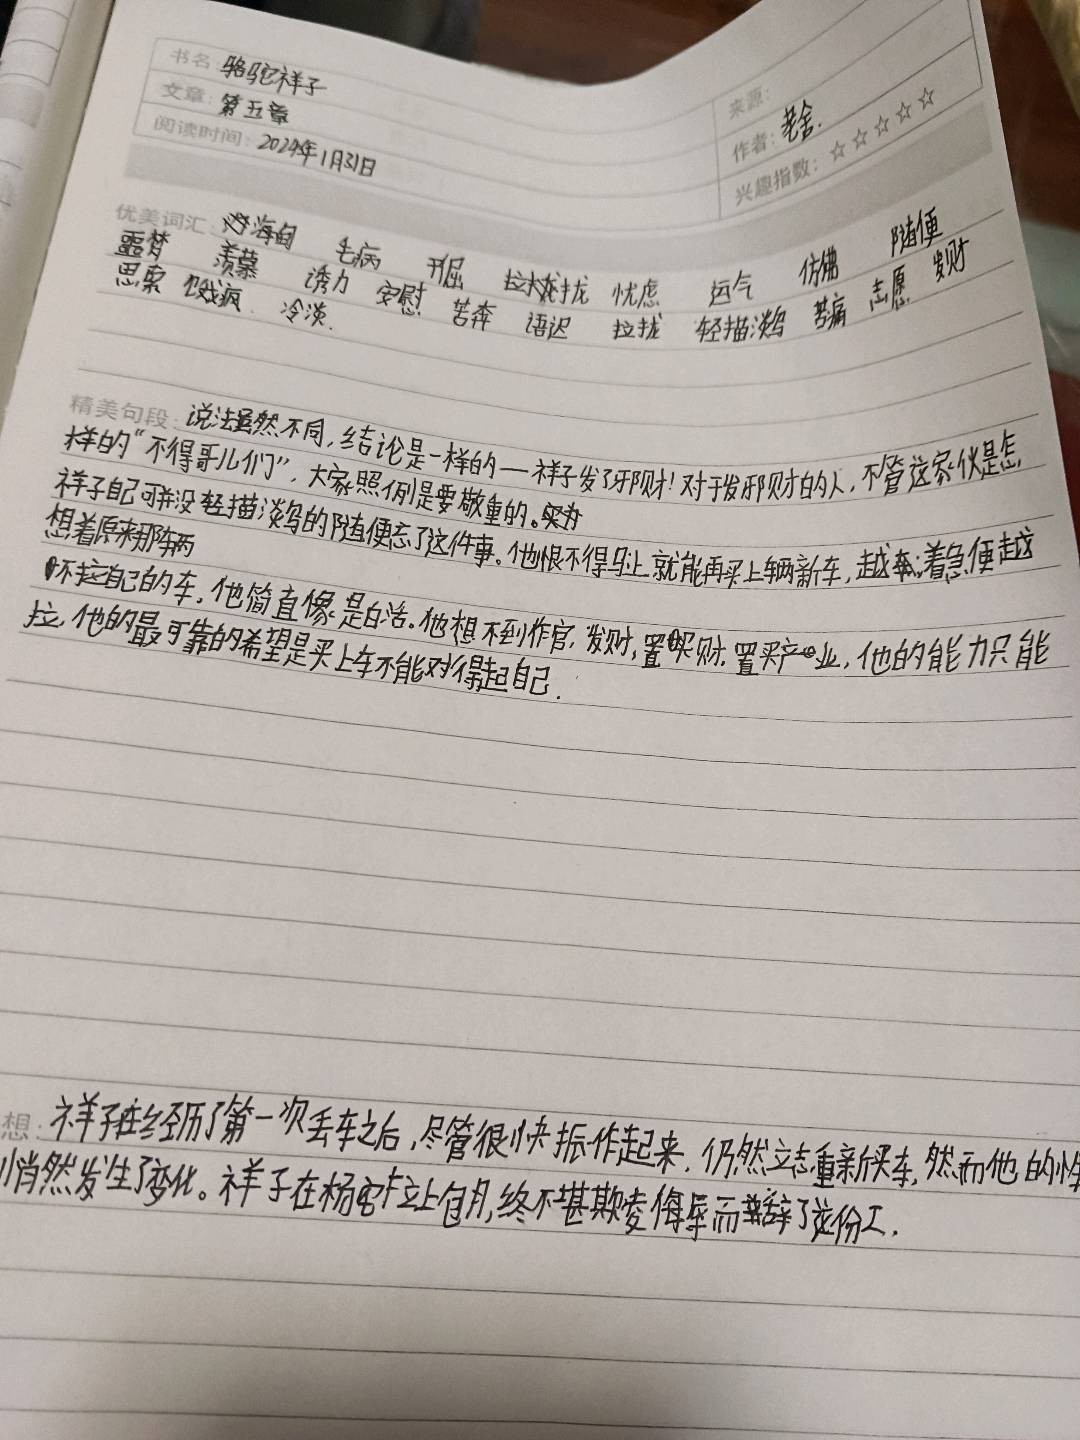 书名: 骆驼祥子
来源:
文章: 第五章
作者: 老舍.
阅读时间: 2024年1月31日
兴趣指数: ☆☆☆☆☆
优美词汇: 海甸 毛病 刊屈 拉拢 忧虑 运气 仿佛 随便
噩梦 羡慕 诱力 安慰 苦奔 语迟 拉拢 轻描淡写 苦痛 志愿 发财
思索 饿疯 冷淡.
精美句段: 说法虽然不同,结论是一样的——祥子发了邪财!对于发邪财的人,不管这家伙是怎
样的“不得哥儿们”,大家照例是要敬重的。
祥子自己可并没轻描淡写的随便忘了这件事。他恨不得马上就能再买上辆新车,越着急便越
想着原来那辆
不拉自己的车,他简直像是白活。他想不到作官,发财,置买产业,他的能力只能
拉,他的最可靠的希望是买上车不能对得起自己.
想: 祥子在经历了第一次丢车之后,尽管很快振作起来,仍然立志重新买车,然而他的性
悄然发生了变化。祥子在杨宅拉上包月,终不堪欺凌侮辱而辞了这份工.